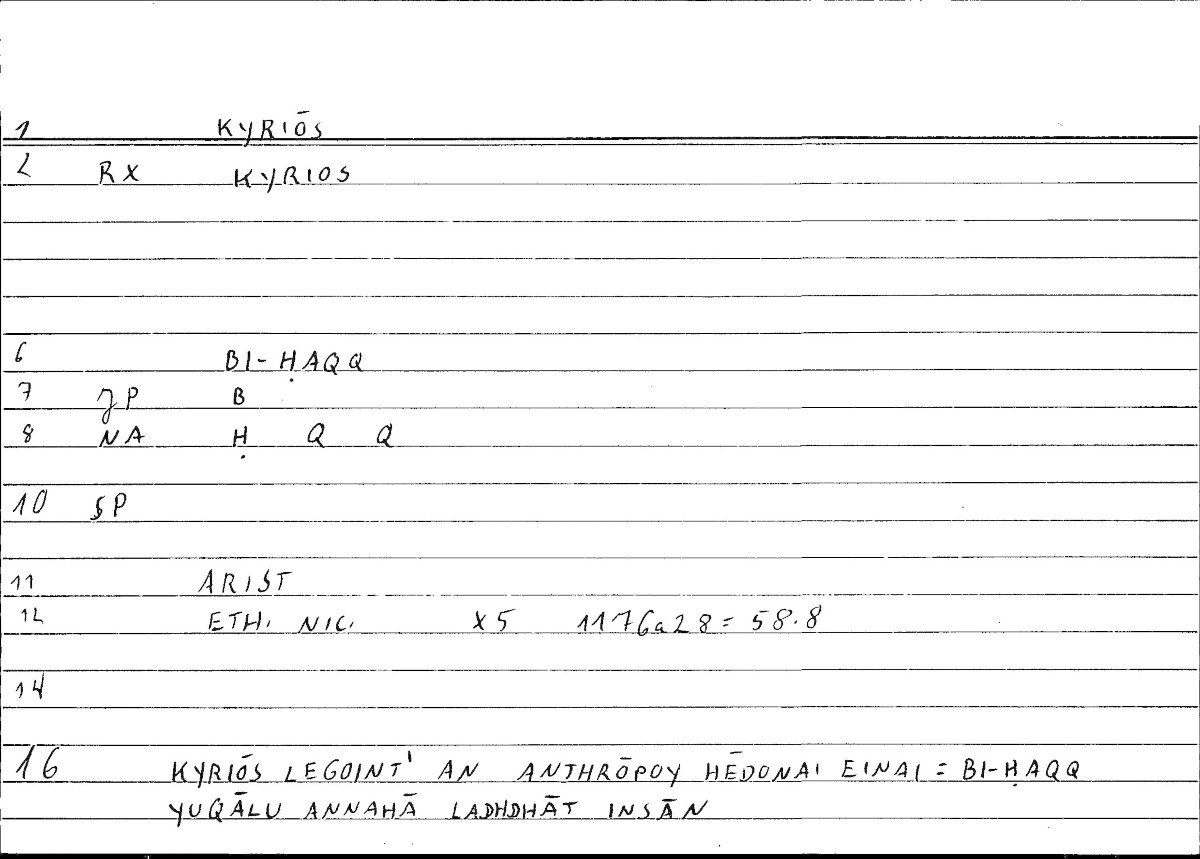 1 KYRIŌS
2 RX KYRIOS
6 BI-ḤAQQ
7 JP B
8 NA Ḥ Q Q
10 §P
11 ARIST
12 ETH. NIC. X5 1176a28 = 58.8
14
16 KYRIŌS LEGOINT' AN ANTHRŌPOY HĒDONAI EINAI = BI-ḤAQQ
YUQĀLU ANNAHĀ LADHDHĀT INSĀN